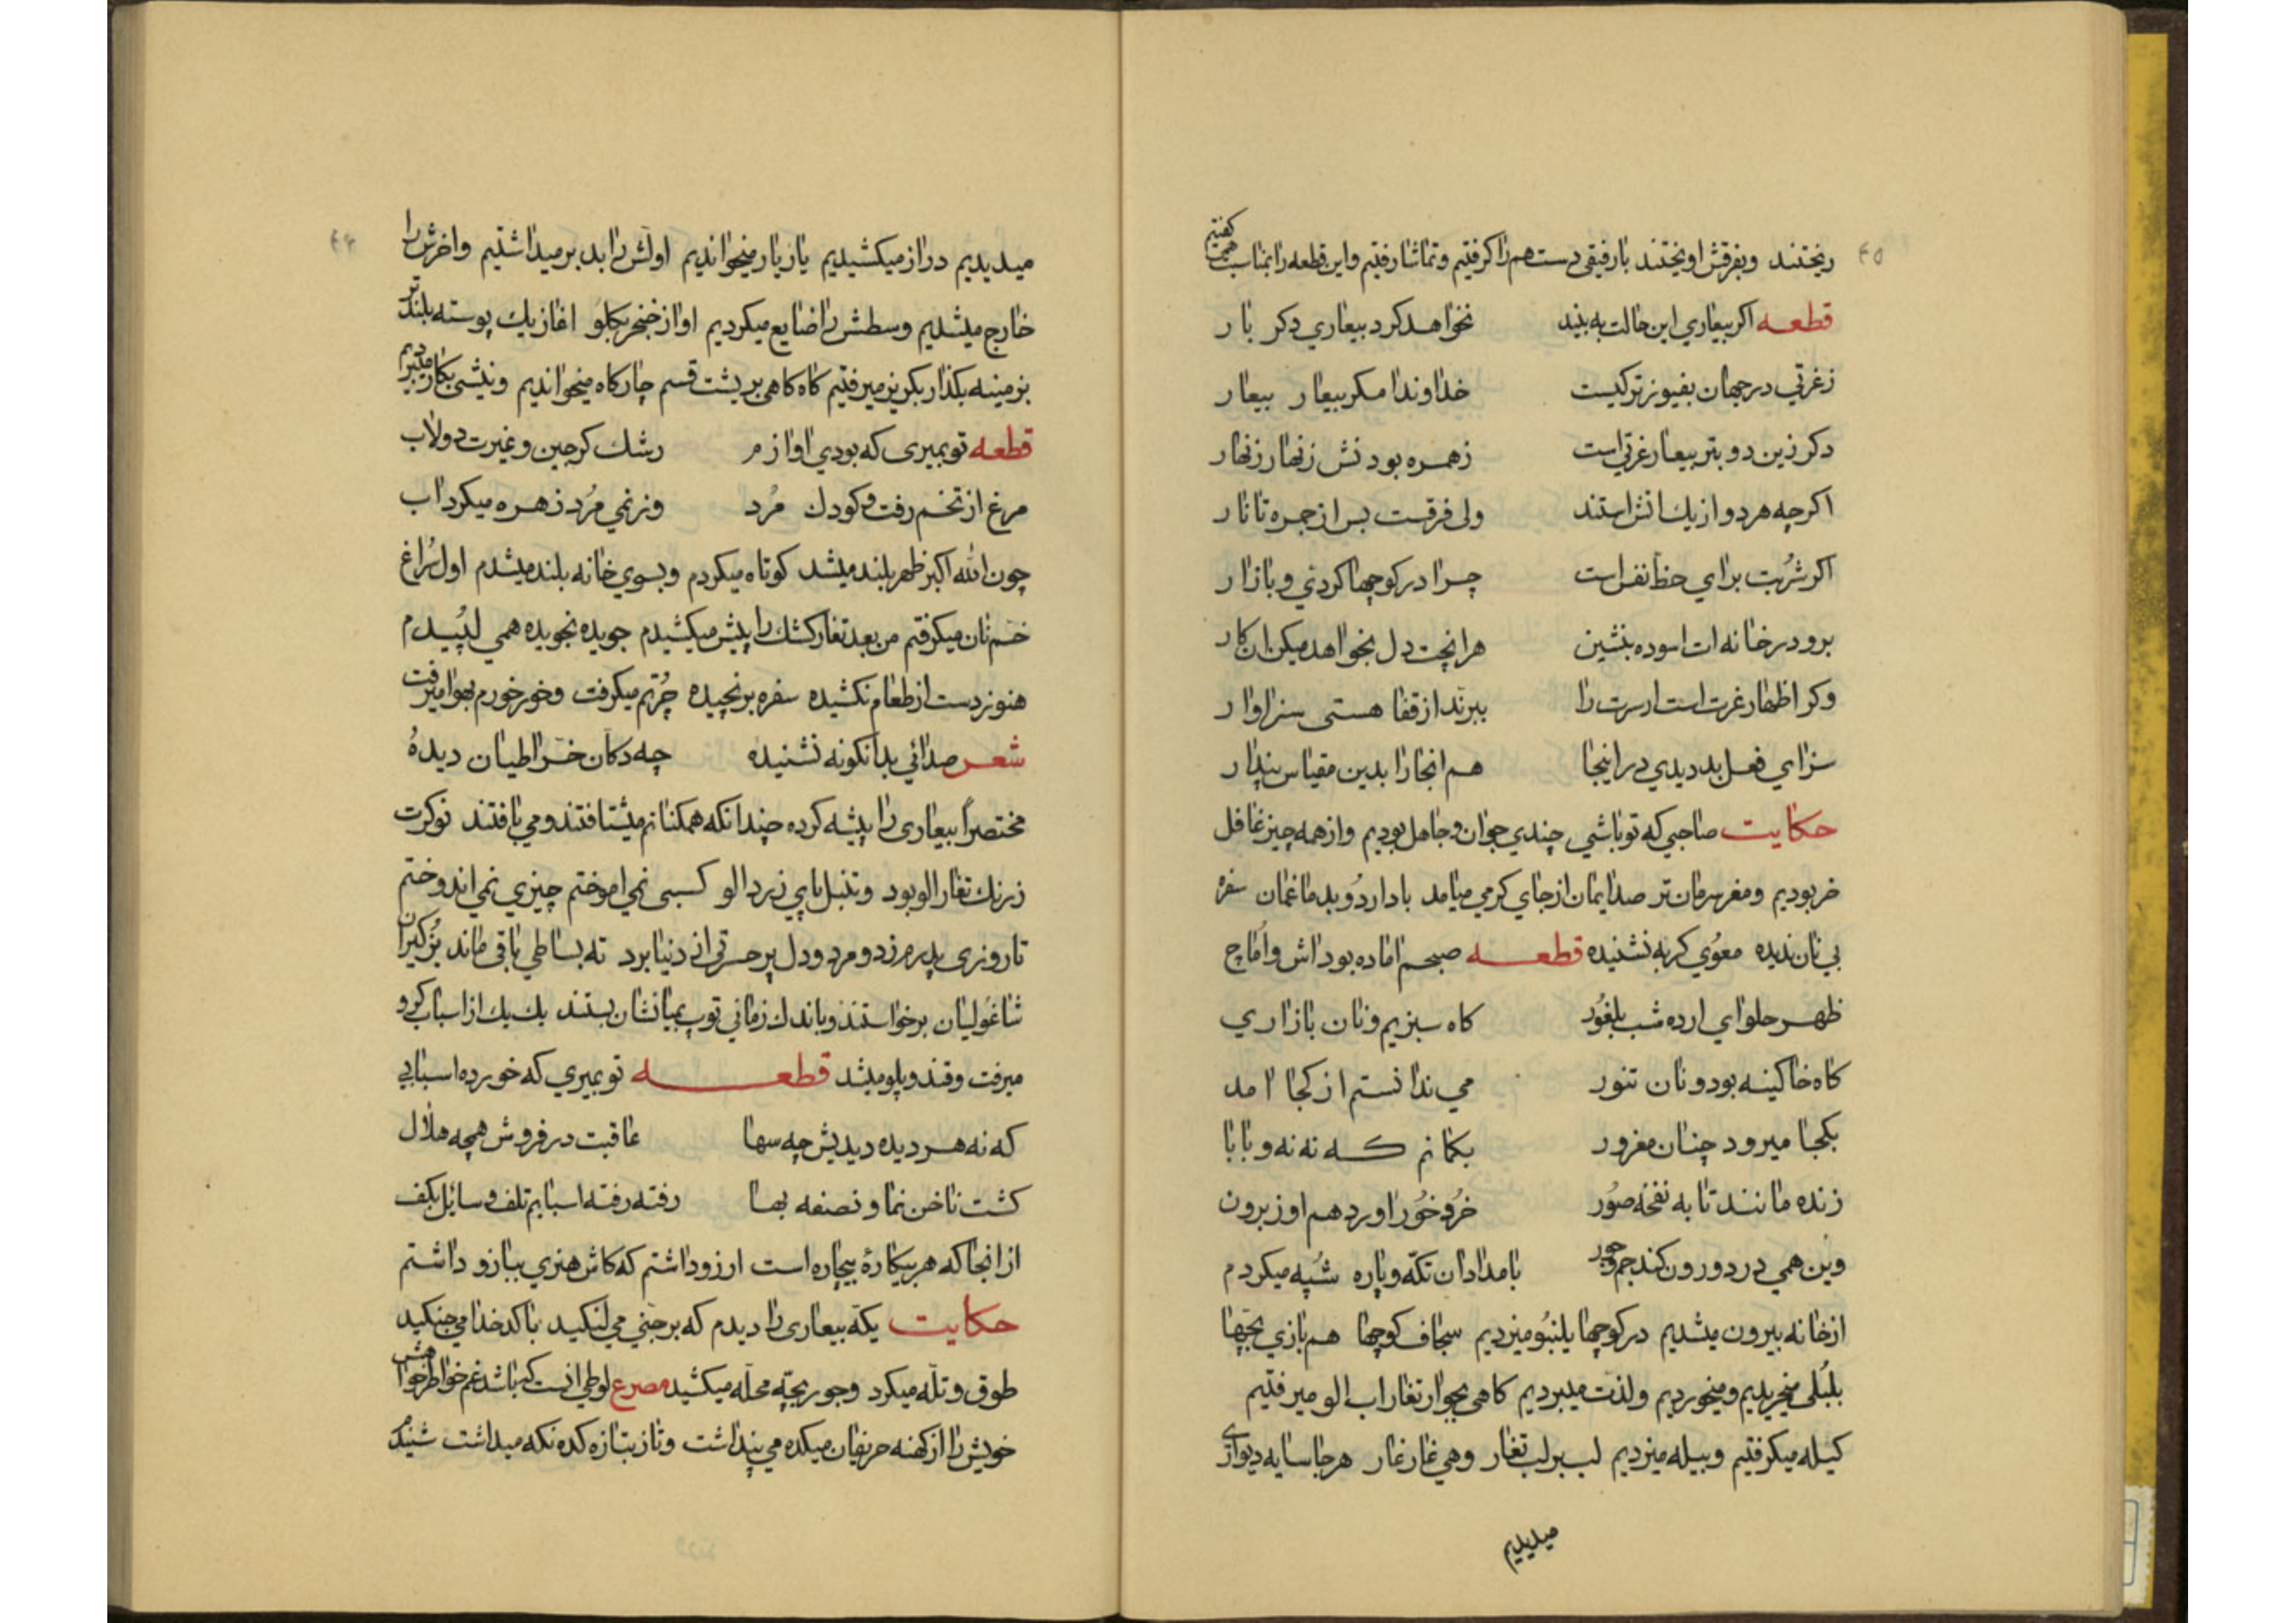 ۴۵
ریختند وبفرقش اویختند بارفیقی دست هم را کرفتیم وتماشا رفتیم واین قطعه را بمناسبت همی کفتیم
قطعه اکر بیعاری این حالت به بیند نخواهد کرد بیعاری دکر بار
زغرتی در جهان بفیوز تر کیست خداوندا مکر بیعار بیعار
دکر زین دو بتر بیعار غرتی است زهمره بودنش زنهار زنهار
اکرچه هر دو از یك اتش استند ولی فرقست بس از جمره تا نار
اکر شربت برای حظ نفس است چرا در کوچها کردی وبازار
برو در خانه ات اسوده بنشین هر انچت دل بخواهد میکن ان کار
وکر اظهار غرت است ارست را ببرند از قفا هستی سزاوار
سزای فعل بد دیدی در اینجا هم انجا را بدین مقیاس پندار
حکایت صاحبی که تو باشی چندی جوان وجاهل بودیم واز همه چیز غافل
خر بودیم ومغز سرمان تر صدایمان از جای کرمی میامد باد اردو بدماغمان سفره
بی نان ندیده معوی کربه نشنیده قطعه صبحم اماده بود اش واماج
ظهر حلوای ارده شب بلغور کاه سبزیم ونان بازاری
کاه خاکینه بود ونان تنور می ندانستم از کجا امد
بکجا میرود چنان مغرور بکمانم که ننه وبابا
زنده مانند تا به نفخه صور خر وخور اورد هم او ز برون
وین همی در درون کند جم وجور بامدادان تکه وپاره شپه میکردم
از خانه بیرون میشدیم در کوچها یلنبو میزدیم سجاف کوچها هم بازی بچها
بلبلی میخریدیم ومیخوردیم ولذت میبردیم کاهی بجوار تغار اب الو میرفتیم
کیله میکرفتیم وبیله میزدیم لب بر لب تغار وهی غار غار هر جا سایه دیواری
میدیدیم
۴۶
میدیدیم دراز میکشیدیم یاز یار میخواندیم اولش را بد بر میداشتیم واخرش را
خارج میشدیم وسطش را ضایع میکردیم اواز خنجر بکلو اغاز یك پوسته بلند تر
بزمینه بکذار بکریز میرفتیم کاه کاهی بر پشت قسم چارکاه میخواندیم ونیشی بکار میبردیم
قطعه تو بمیری که بودی اوازم رشك کرجین وغیرت دولاب
مرغ از تخم رفت وکودك مرد وز نمی مرد زهره میکرد اب
چون الله اکبر ظهر بلند میشد کوتاه میکردم وبسوی خانه بلند میشدم اول سراغ
خم نان میکرفتم من بعد تغار کشك را پیش میکشیدم جویده نجویده همی لپیدم
هنوز دست از طعام نکشیده سفره برنچیده چرتم میکرفت وخور خورم بهوا میرفت
شعر صدائی بدانکونه نشنیده چه دکان خراطیان دیده
مختصرا بیعاری را پیشه کرده چندانکه همکنانم میشتافتند ومی یافتند نوکرت
زرنك تغار الو بود وتنبل پای زرد الو کسبی نمی اموختم چیزی نمی اندوختم
تا روزی پدرم زد ومرد ودل پر حسرتی از دنیا برد ته بساطی باقی ماند بزکیران
شاغولیان برخواستند وباندك زمانی توپ بمیانشان بستند یك یك از اسباب کرو
میرفت وقند وپلو میشد قطعه تو بمیری که خورده اسبابی
که نه هر دیده دیدیش چه سها عاقبت در فروش همچه هلال
کشت ناخن نما ونصفه بها رفته رفته اسبابم تلف وسایل بکف
از انجا که هر بیکارۀ بیچاره است ارزو داشتم که کاش هنری ببازو داشتم
حکایت یکه بیعاری را دیدم که بر جنی می لنکید با کدخدا می جنکید
طوق وتله میکرد وجور بچه محله میکشید مصرع لوطی انست که باشد غم خواطر خواهش
خویش را از کهنه حریفان میکده می پنداشت وتاز بتازه کده نکه میداشت شنیدم